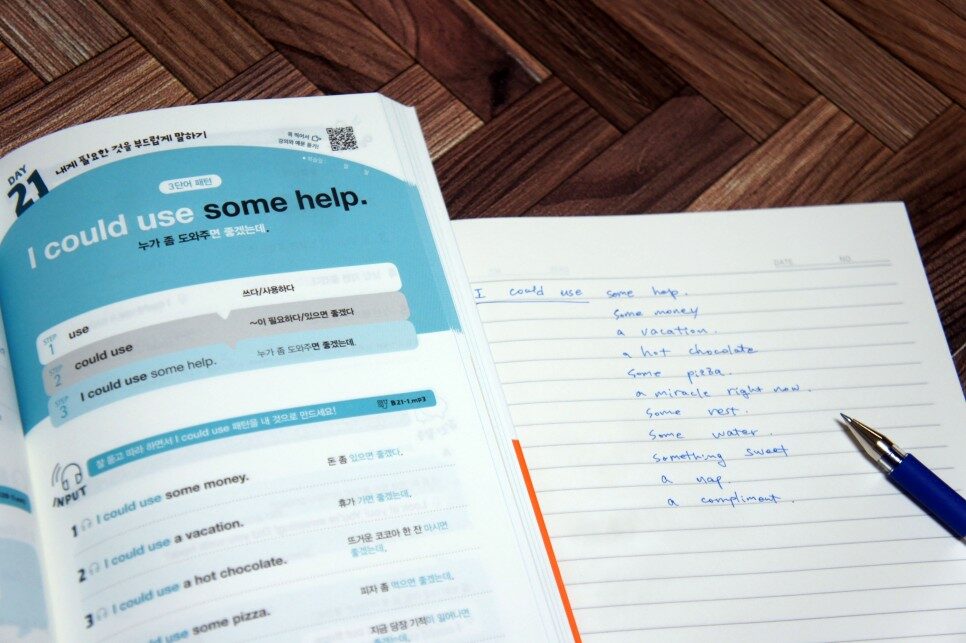 DAY 21
내게 필요한 것을 부드럽게 말하기
3단어 패턴
I could use some help.
누가 좀 도와주면 좋겠는데.
STEP 1 use 쓰다/사용하다
STEP 2 could use ~이 필요하다/있으면 좋겠다
STEP 3 I could use some help. 누가 좀 도와주면 좋겠는데.
잘 듣고 따라 하면서 I could use 패턴을 내 것으로 만드세요! B21-1.mp3
INPUT
1 I could use some money. 돈 좀 있으면 좋겠다.
2 I could use a vacation. 휴가 가면 좋겠는데.
3 I could use a hot chocolate. 뜨거운 코코아 한 잔 마시면
좋겠는데.
could use some pizza. 피자 좀 먹으면 좋겠는데.
지금 당장 기적이 일어나면
DATE NO.
I could use some help.
some money
a vacation.
a hot chocolate
some pizza.
a miracle right now.
some rest.
some water.
something sweet
a nap.
a compliment.